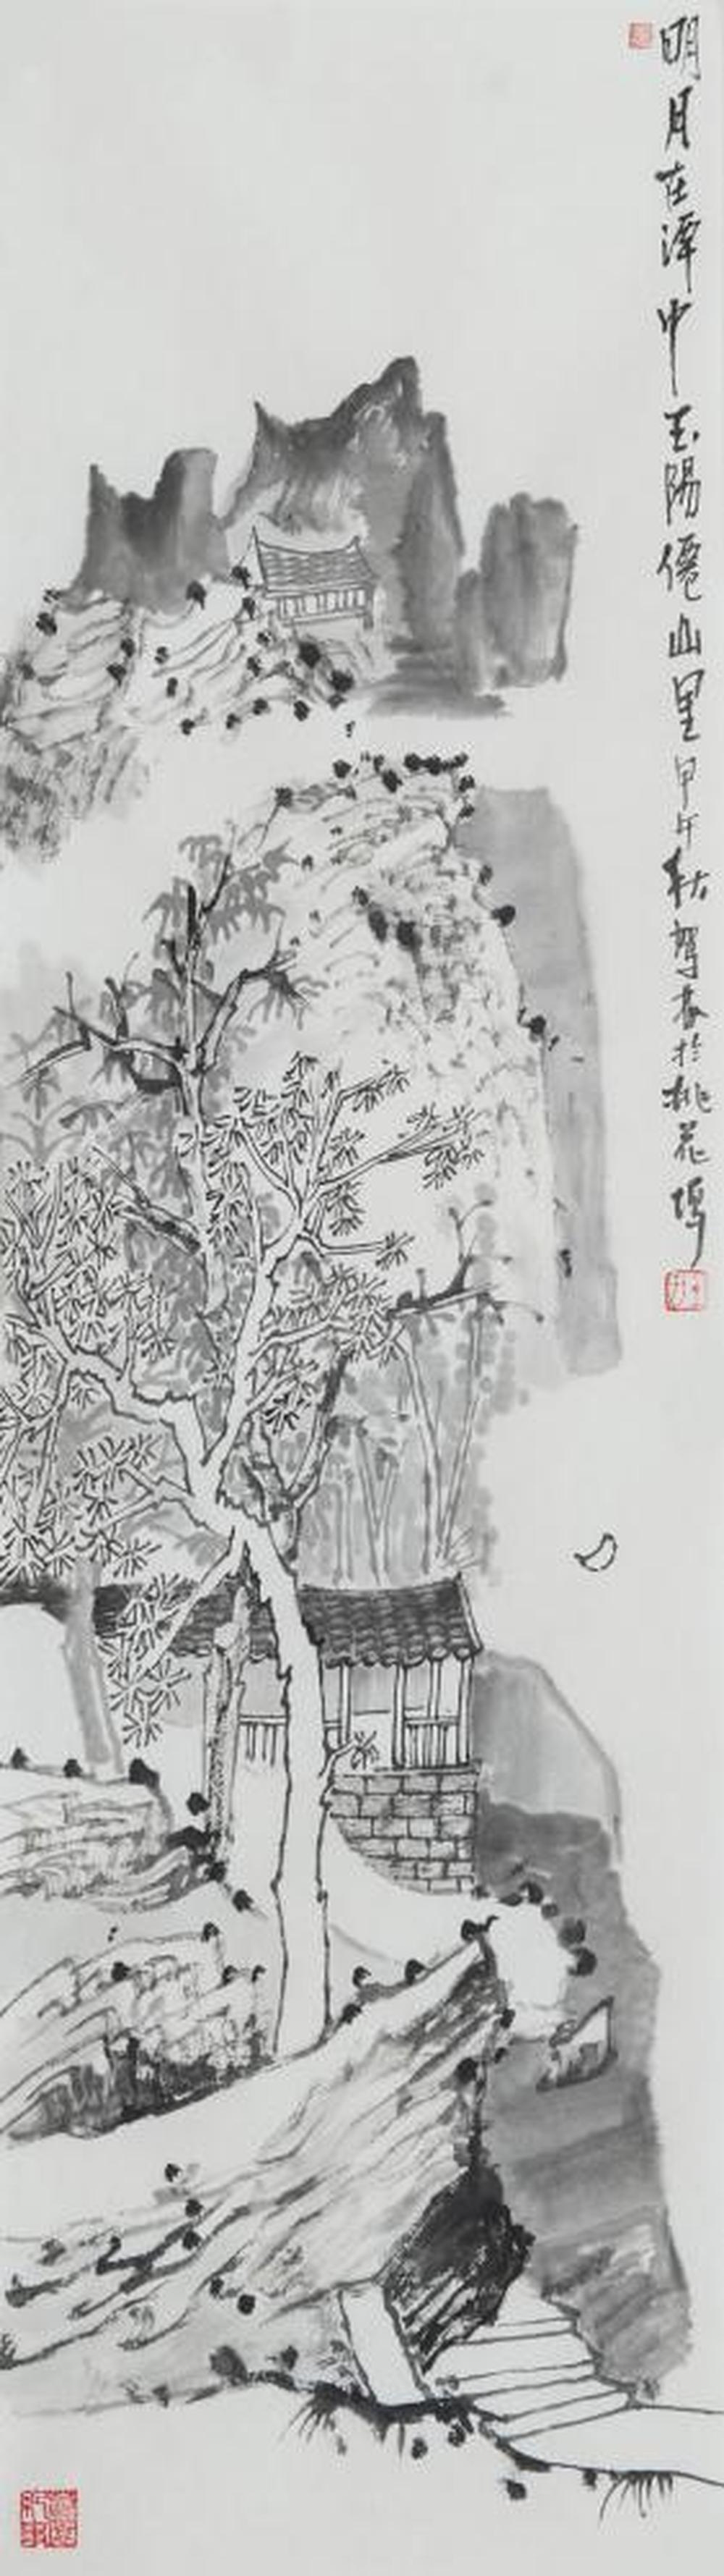 明月在潭中玉陽僊山里甲午秋駕森於桃花塢